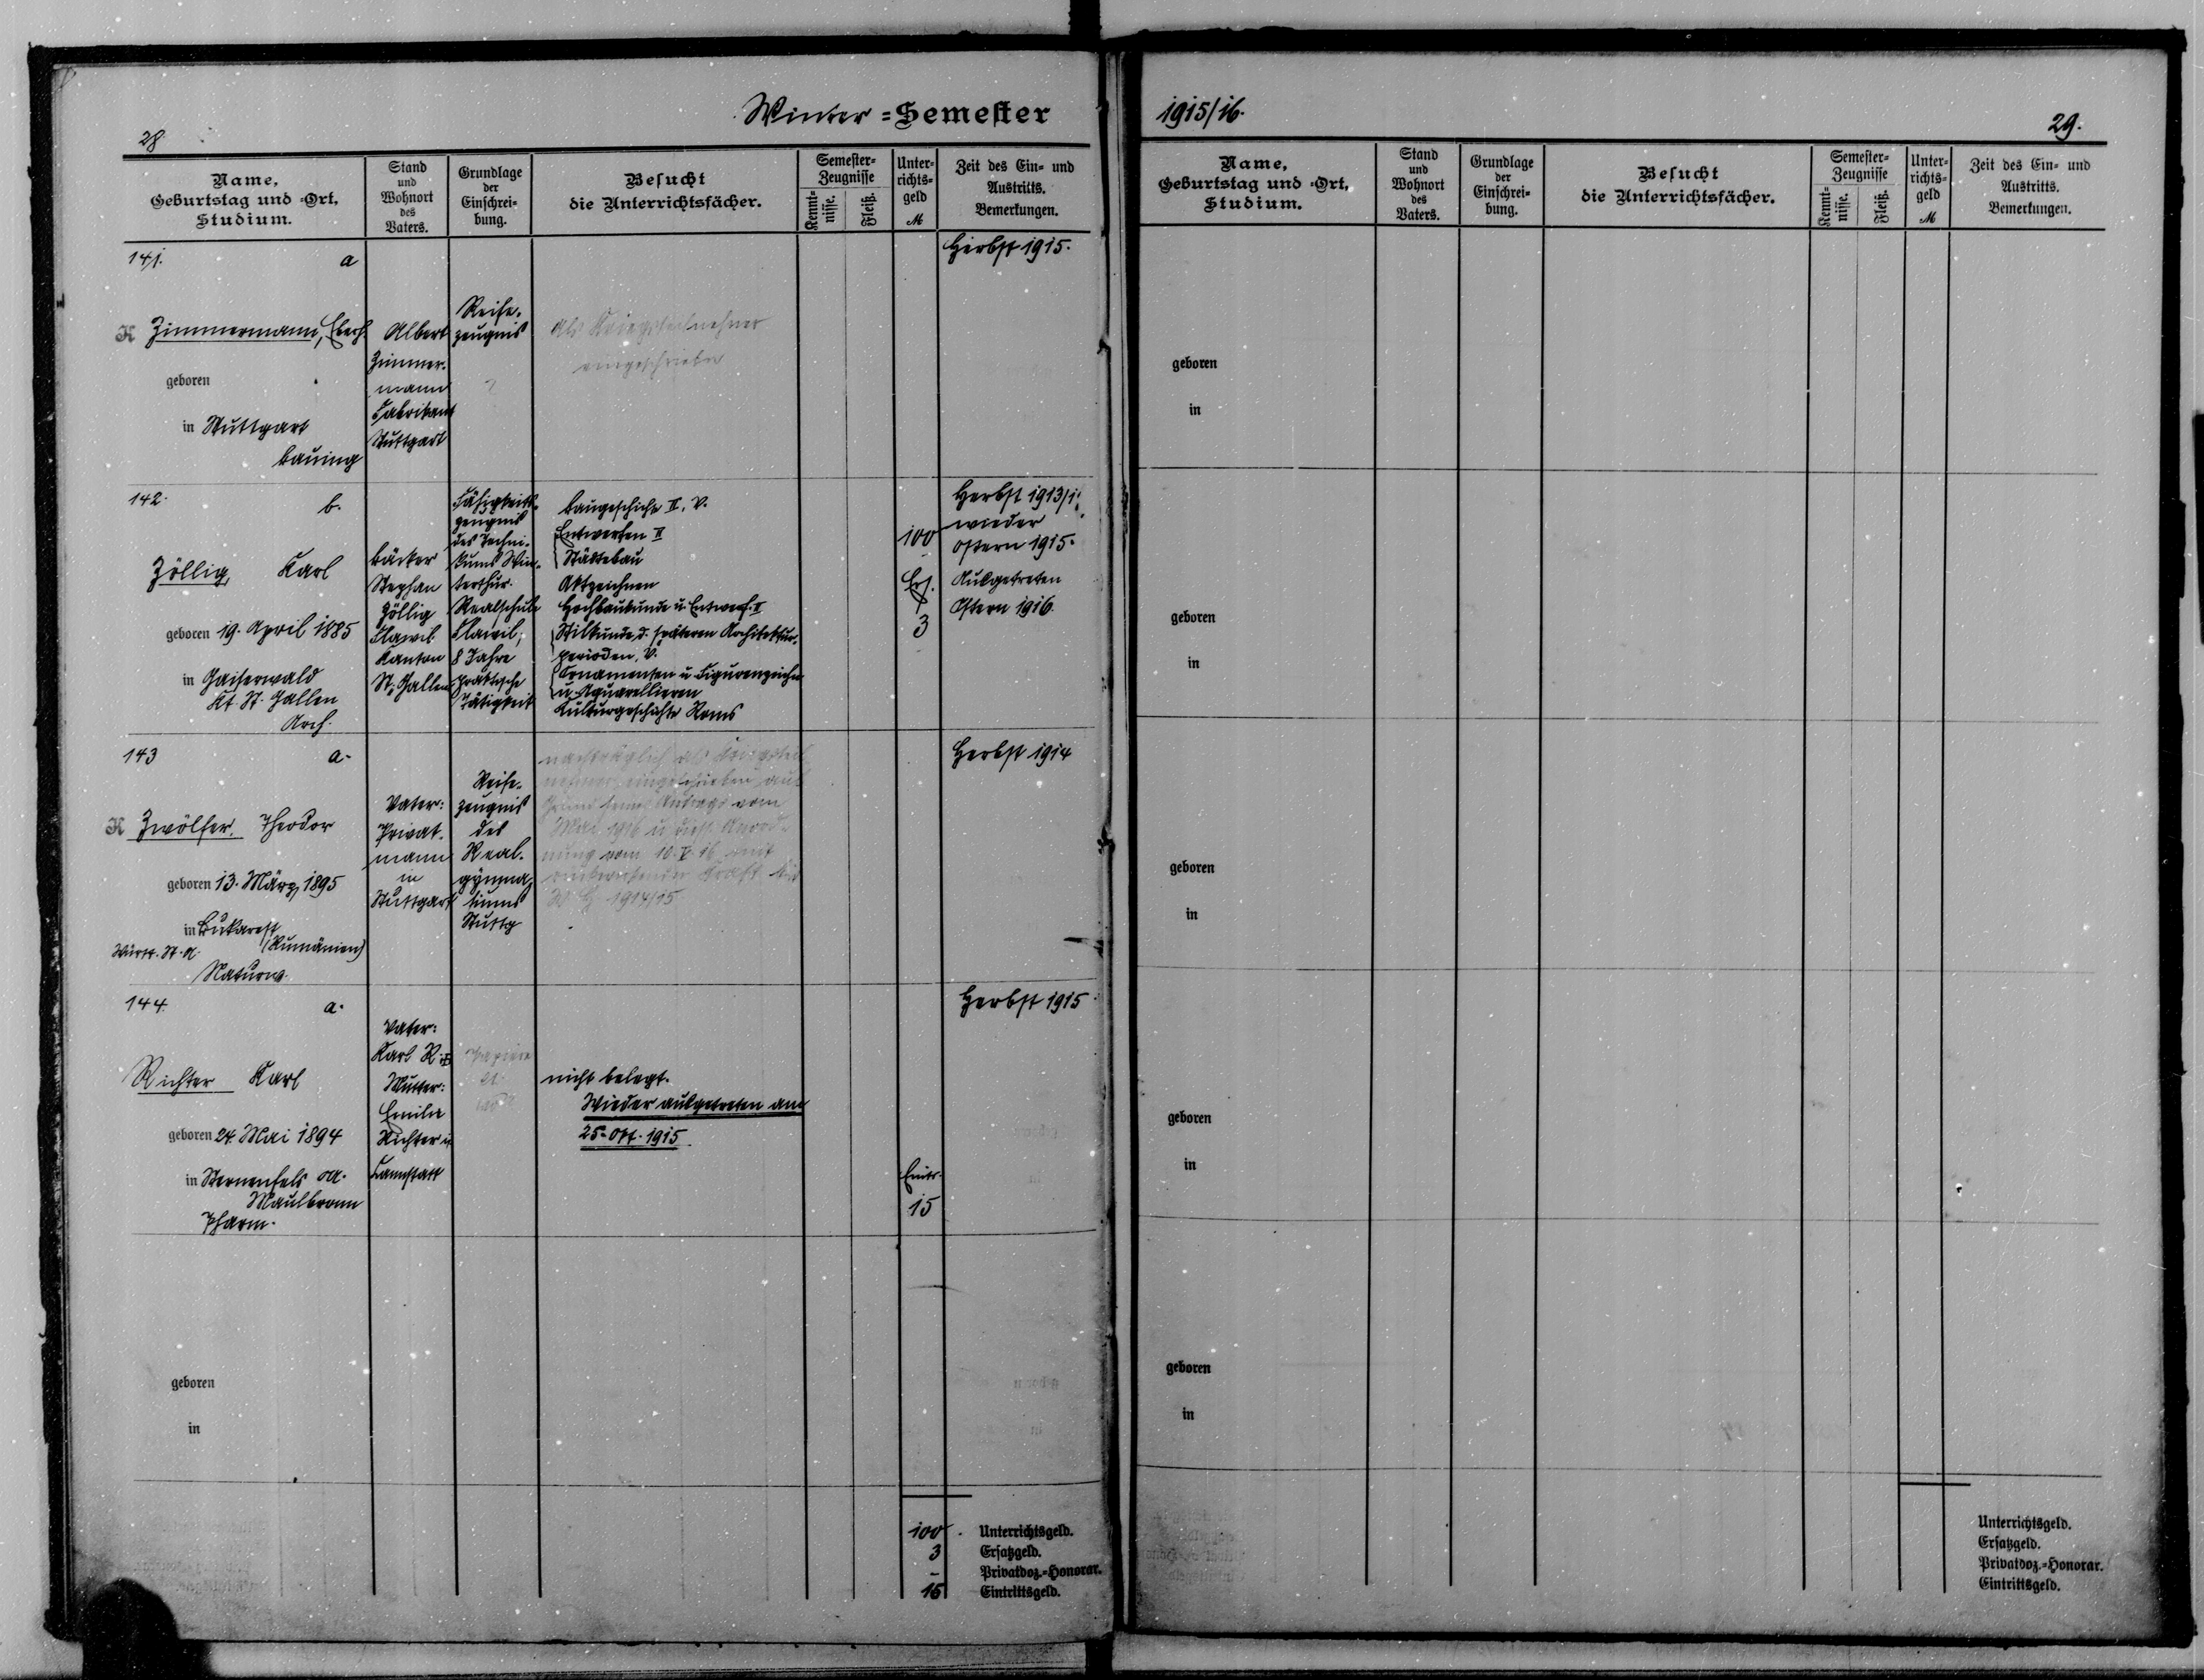 Winter = Semester
28.
Name,
Geburtstag und -Ort,
Studium.
Stand
und
Wohnort
des
Vaters.
Grundlage
der
Einschrei-
bung.
Besucht
die Unterrichtsfächer.
Semester-
Zeugnisse
Kennt-
nisse.
Fleiß.
Unter-
richts-
geld
M
Zeit des Ein- und
Austritts.
Bemerkungen.
141.
a
K Zimmermann, Eberh.
geboren
in Stuttgart
Bauing
Albert
Zimmer-
mann
Fabrikant
Stuttgart
Reife-
zeugnis
?
Als Kriegsteilnehmer
eingeschrieben
Herbst 1915.
142.
b.
Zöllig, Karl
geboren 19. April 1885
in Gaiserwald
Kt. St. Gallen
Arch.
Bäcker
Stephan
Zöllig
Flawil
Kanton
St. Gallen
Fähigkeits-
zeugnis
des Techni-
kums Win-
terthur.
Realschule
Flawil,
8 Jahre
praktische
Tätigkeit
Baugeschichte II, V.
Entwerfen II
Städtebau
Aktzeichnen
Hochbaukunde u. Entwerf. I
Stilkunde d. späteren Architektur-
perioden, V.
Ornamenten u Figurenzeichn
u. Aquarellieren
Kulturgeschichte Roms
100
Ers.
3
Herbst 1913/1
wieder
Ostern 1915.
Ausgetreten
Ostern 1916.
143
a.
K Zwölfer, Theodor
geboren 13. März 1895
in Bukarest
(Rumänien)
Württ. St. A.
Naturw.
Vater:
Privat-
mann
in
Stuttgart
Reife-
zeugnis
des
Real-
gymna-
siums
Stuttg
nachträglich als Kriegsteil
nehmer eingeschrieben auf
Grund seines Antrags vom
Mai 1916 u. dies. Anord-
nung vom 10. V. 16 mit
rückwirkender Kraft bis
W H 1914/15
Herbst 1914
144.
a.
Richter Karl
geboren 24. Mai 1894
in Sternenfels OA.
Maulbronn
Pharm.
Vater:
Karl R
Mutter:
Emilie
Richter in
Cannstatt
Papiere
nicht belegt.
Wieder ausgetreten am
25. Okt. 1915
Eintr.
15
Herbst 1915
geboren
in
100 Unterrichtsgeld.
3 Ersatzgeld.
- Privatdoz.-Honorar.
15 Eintrittsgeld.
1915/16.
29.
Name,
Geburtstag und -Ort,
Studium.
Stand
und
Wohnort
des
Vaters.
Grundlage
der
Einschrei-
bung.
Besucht
die Unterrichtsfächer.
Semester-
Zeugnisse
Kennt-
nisse.
Fleiß.
Unter-
richts-
geld
M
Zeit des Ein- und
Austritts.
Bemerkungen.
geboren
in
geboren
in
geboren
in
geboren
in
geboren
in
Unterrichtsgeld.
Ersatzgeld.
Privatdoz.-Honorar.
Eintrittsgeld.